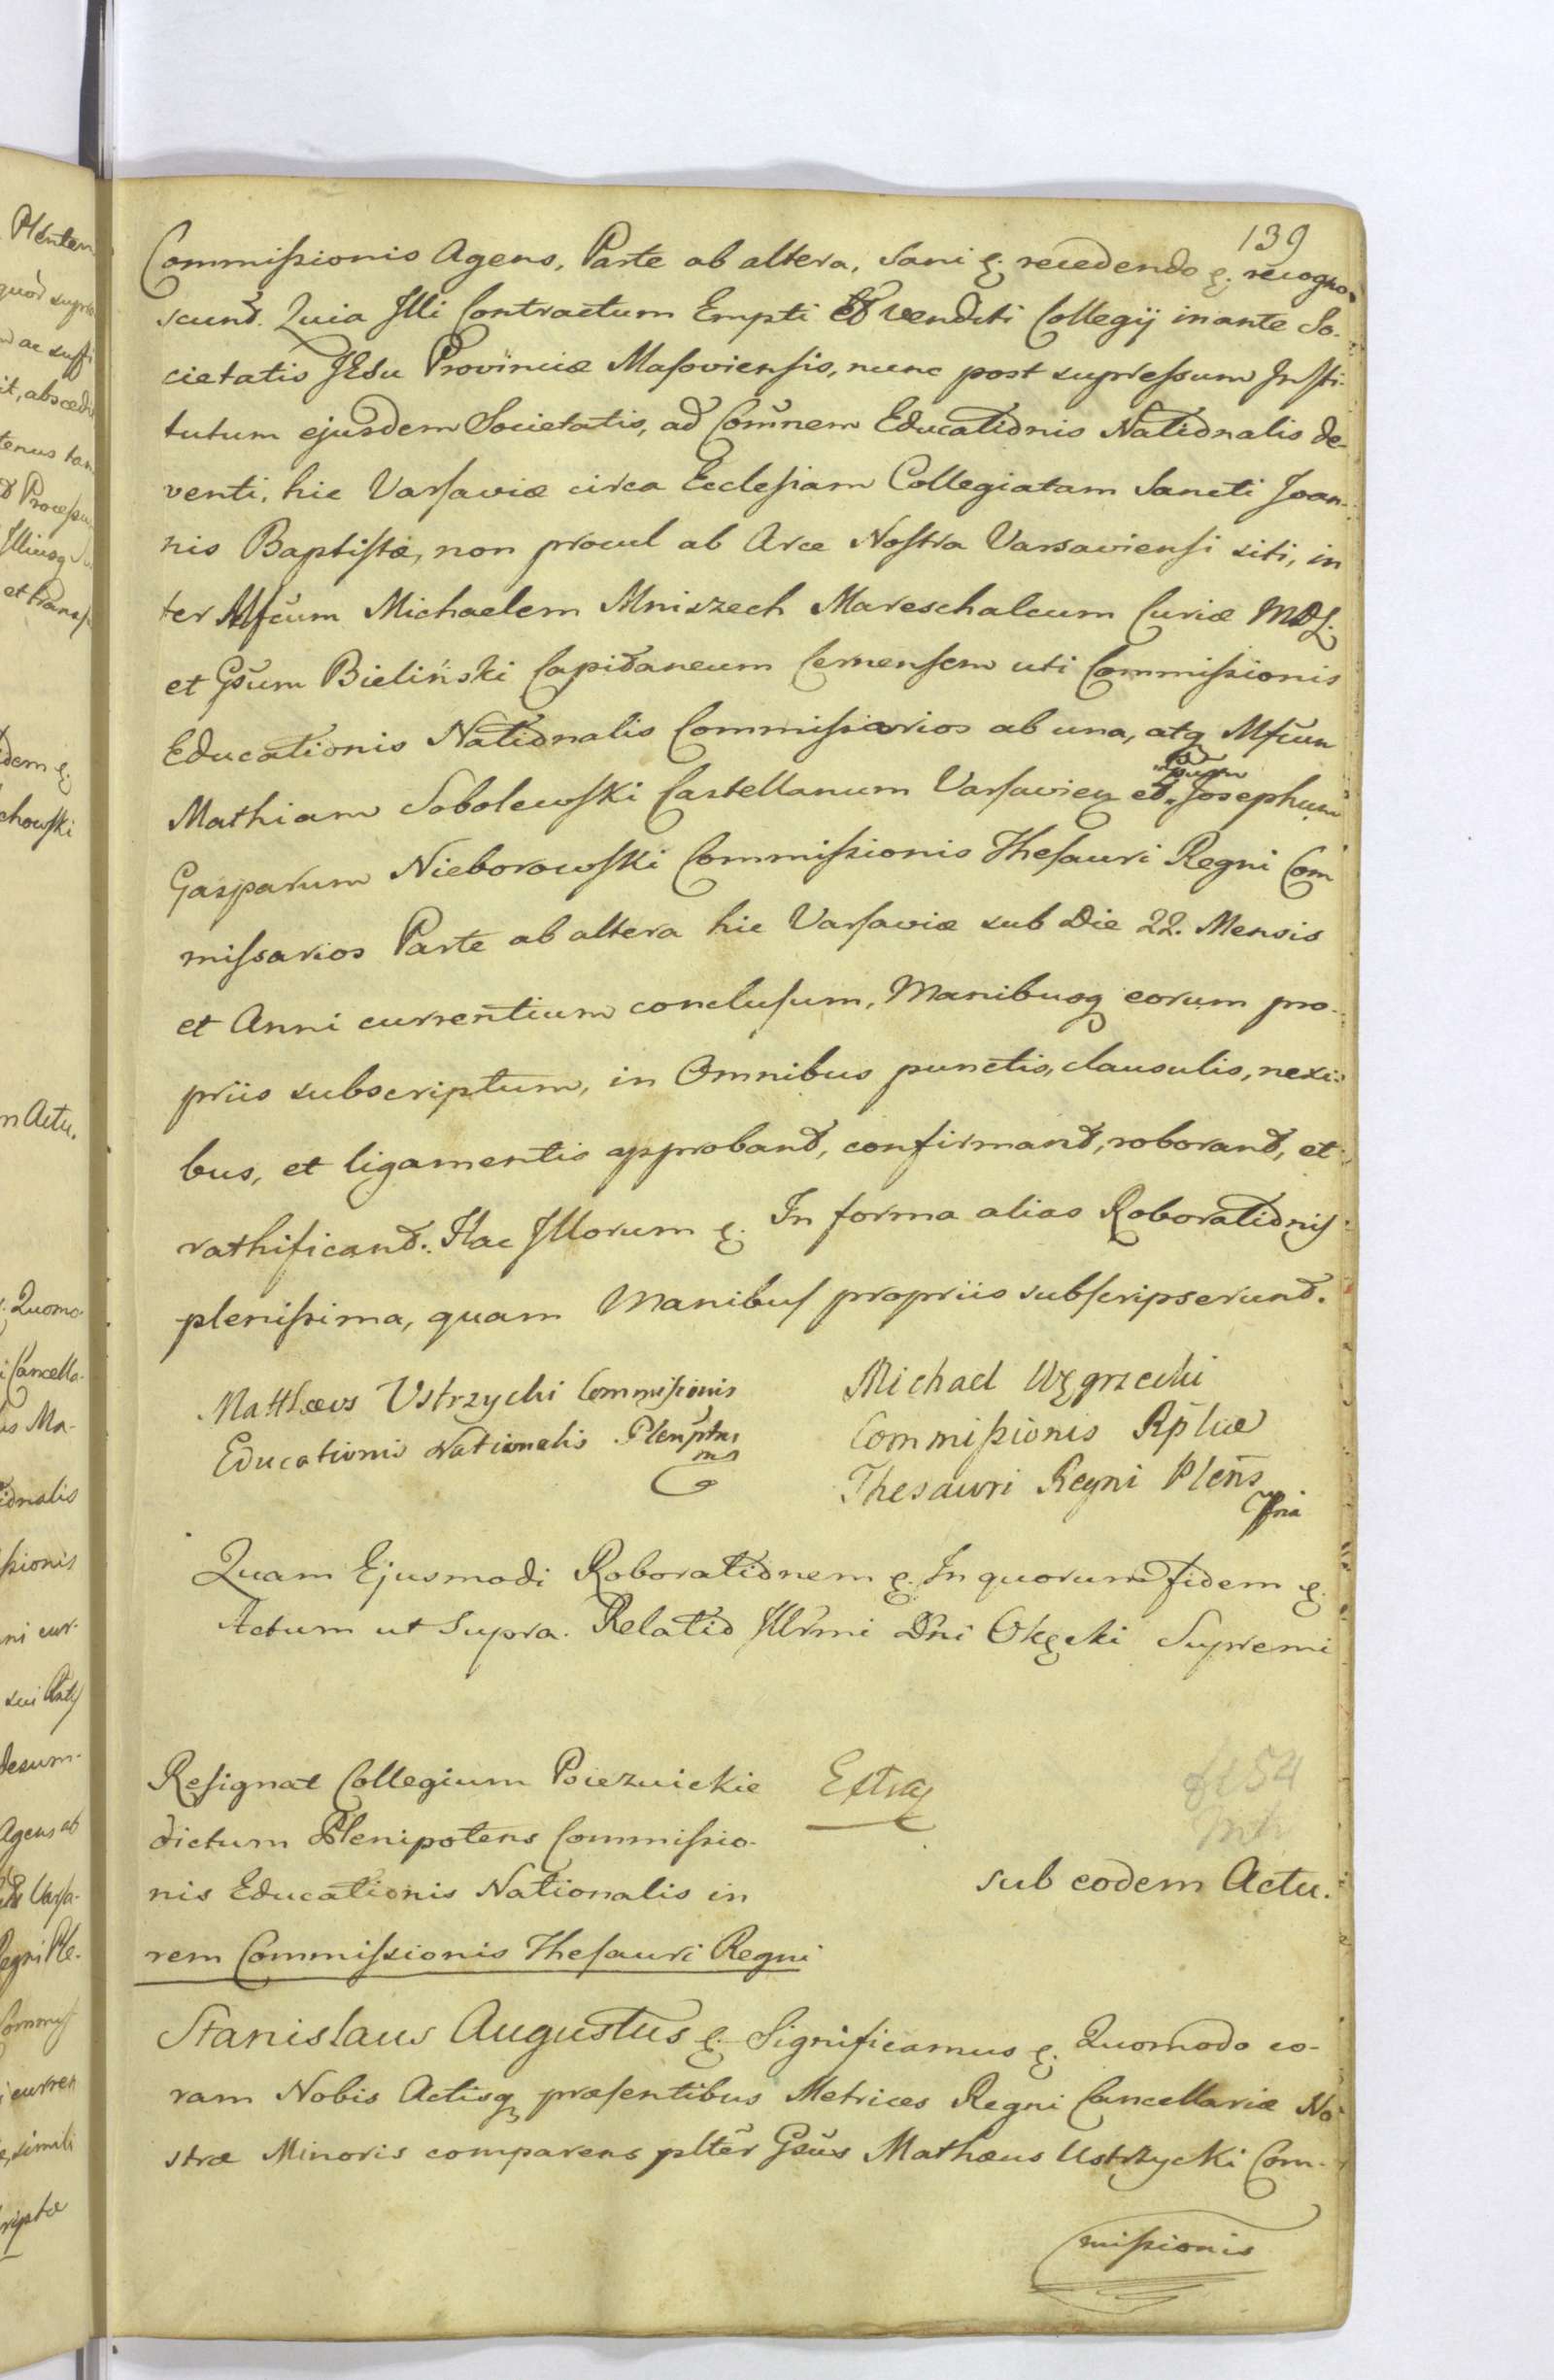 139
Commissionis Agens, Parte ab altera, Sani &. recedendo &. recogno-
scunt. Quia Illi Contractum Empti et venditi Collegij inante So-
cietatis JEsu Provinciæ Masoviensis, nunc post supressum Insti-
tutum ejusdem Societatis, ad Com̃nem Educationis Nationalis de-
venti, hic Varsaviæ circa Ecclesiam Collegiatam Sancti Joan-
nis Baptistæ, non procul ab Arce Nostra Varsaviensi siti, in
ter Mfcum Michaelem Mniszech Mareschalcum Curiæ MDL.
et Gsum Bieliński Capitaneum Cernensem uti Commissionis
Educationis Nationalis Commissiarios ab una, atq Mfcum
Mathiam Sobolewski Castellanum Varsavien et Josephum
Gasparum Nieborowski Commissionis Thesauri Regni Com
missarios Parte ab altera hic Varsaviæ sub Die 22. Mensis
et Anni currentium conclusum, Manibusq eorum pro-
priis subscriptum, in Omnibus punctis, clausulis, nexi-
bus, et ligamentis approbant, confirmant, roborant, et
rathificant. Hac Illorum &. In forma alias Roborationis
plenissima, quam Manibus propriis subscripserunt.
Matthæus Ustrzycki Commissionis
Educationis Nationalis Plenptus
mp
Michael Węgrzecki
Commissionis Rplicæ
Thesauri Regni Plens
mpria
Quam Ejusmodi Roborationem &. In quorum fidem &.
Actum ut Supra. Relatio Illrmi Dni Okęcki Supremi
Resignat Collegium Poiezuickie
dictum Plenipotens Commissio-
nis Educationis Nationalis in
rem Commissionis Thesauri Regni
Extra
sub eodem Actu.
Stanislaus Augustus &. Significamus &. Quomodo co-
ram Nobis Actisq præsentibus Metrices Regni Cancellariæ No-
stræ Minoris comparens plter Gsus Mathæus Ustrzycki Com-
missionis